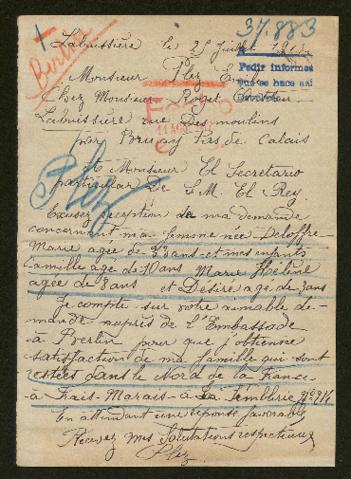 37.883
Labuissière le 25 Juillet
Berlin
Pedir informes
que se hace así
Monsieur Plez
Chez Monsieur
Labuissière rue des moulins
par Bruay Pas de Calais
A Monsieur El Secretario
particular De S.M. El Rey
Plez
Excusez reception de ma demande
concernant ma femme née Deloffre
Marie agée de 33 ans et mes enfants
Camille agé de 10 ans Marie Héline
agée de 8 ans et Désiré agé de 7 ans
Je compte sur votre aimable de-
mande auprès de l'Embassade
à Berlin pour que j'obtienne
satisfaction de ma famille qui sont
restées dans le Nord de la France
à Frais-Marais à La Tomblerie Nº
En attendant une réponse favorable
Recevez mes Salutations respectueuses
Plez